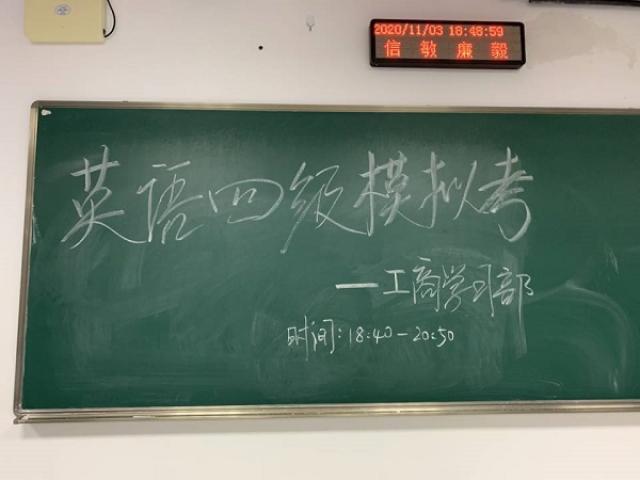 2020/11/03 18:48:59
信敏廉毅
英语四级模拟考
—工商学习部
时间:18:40-20:50